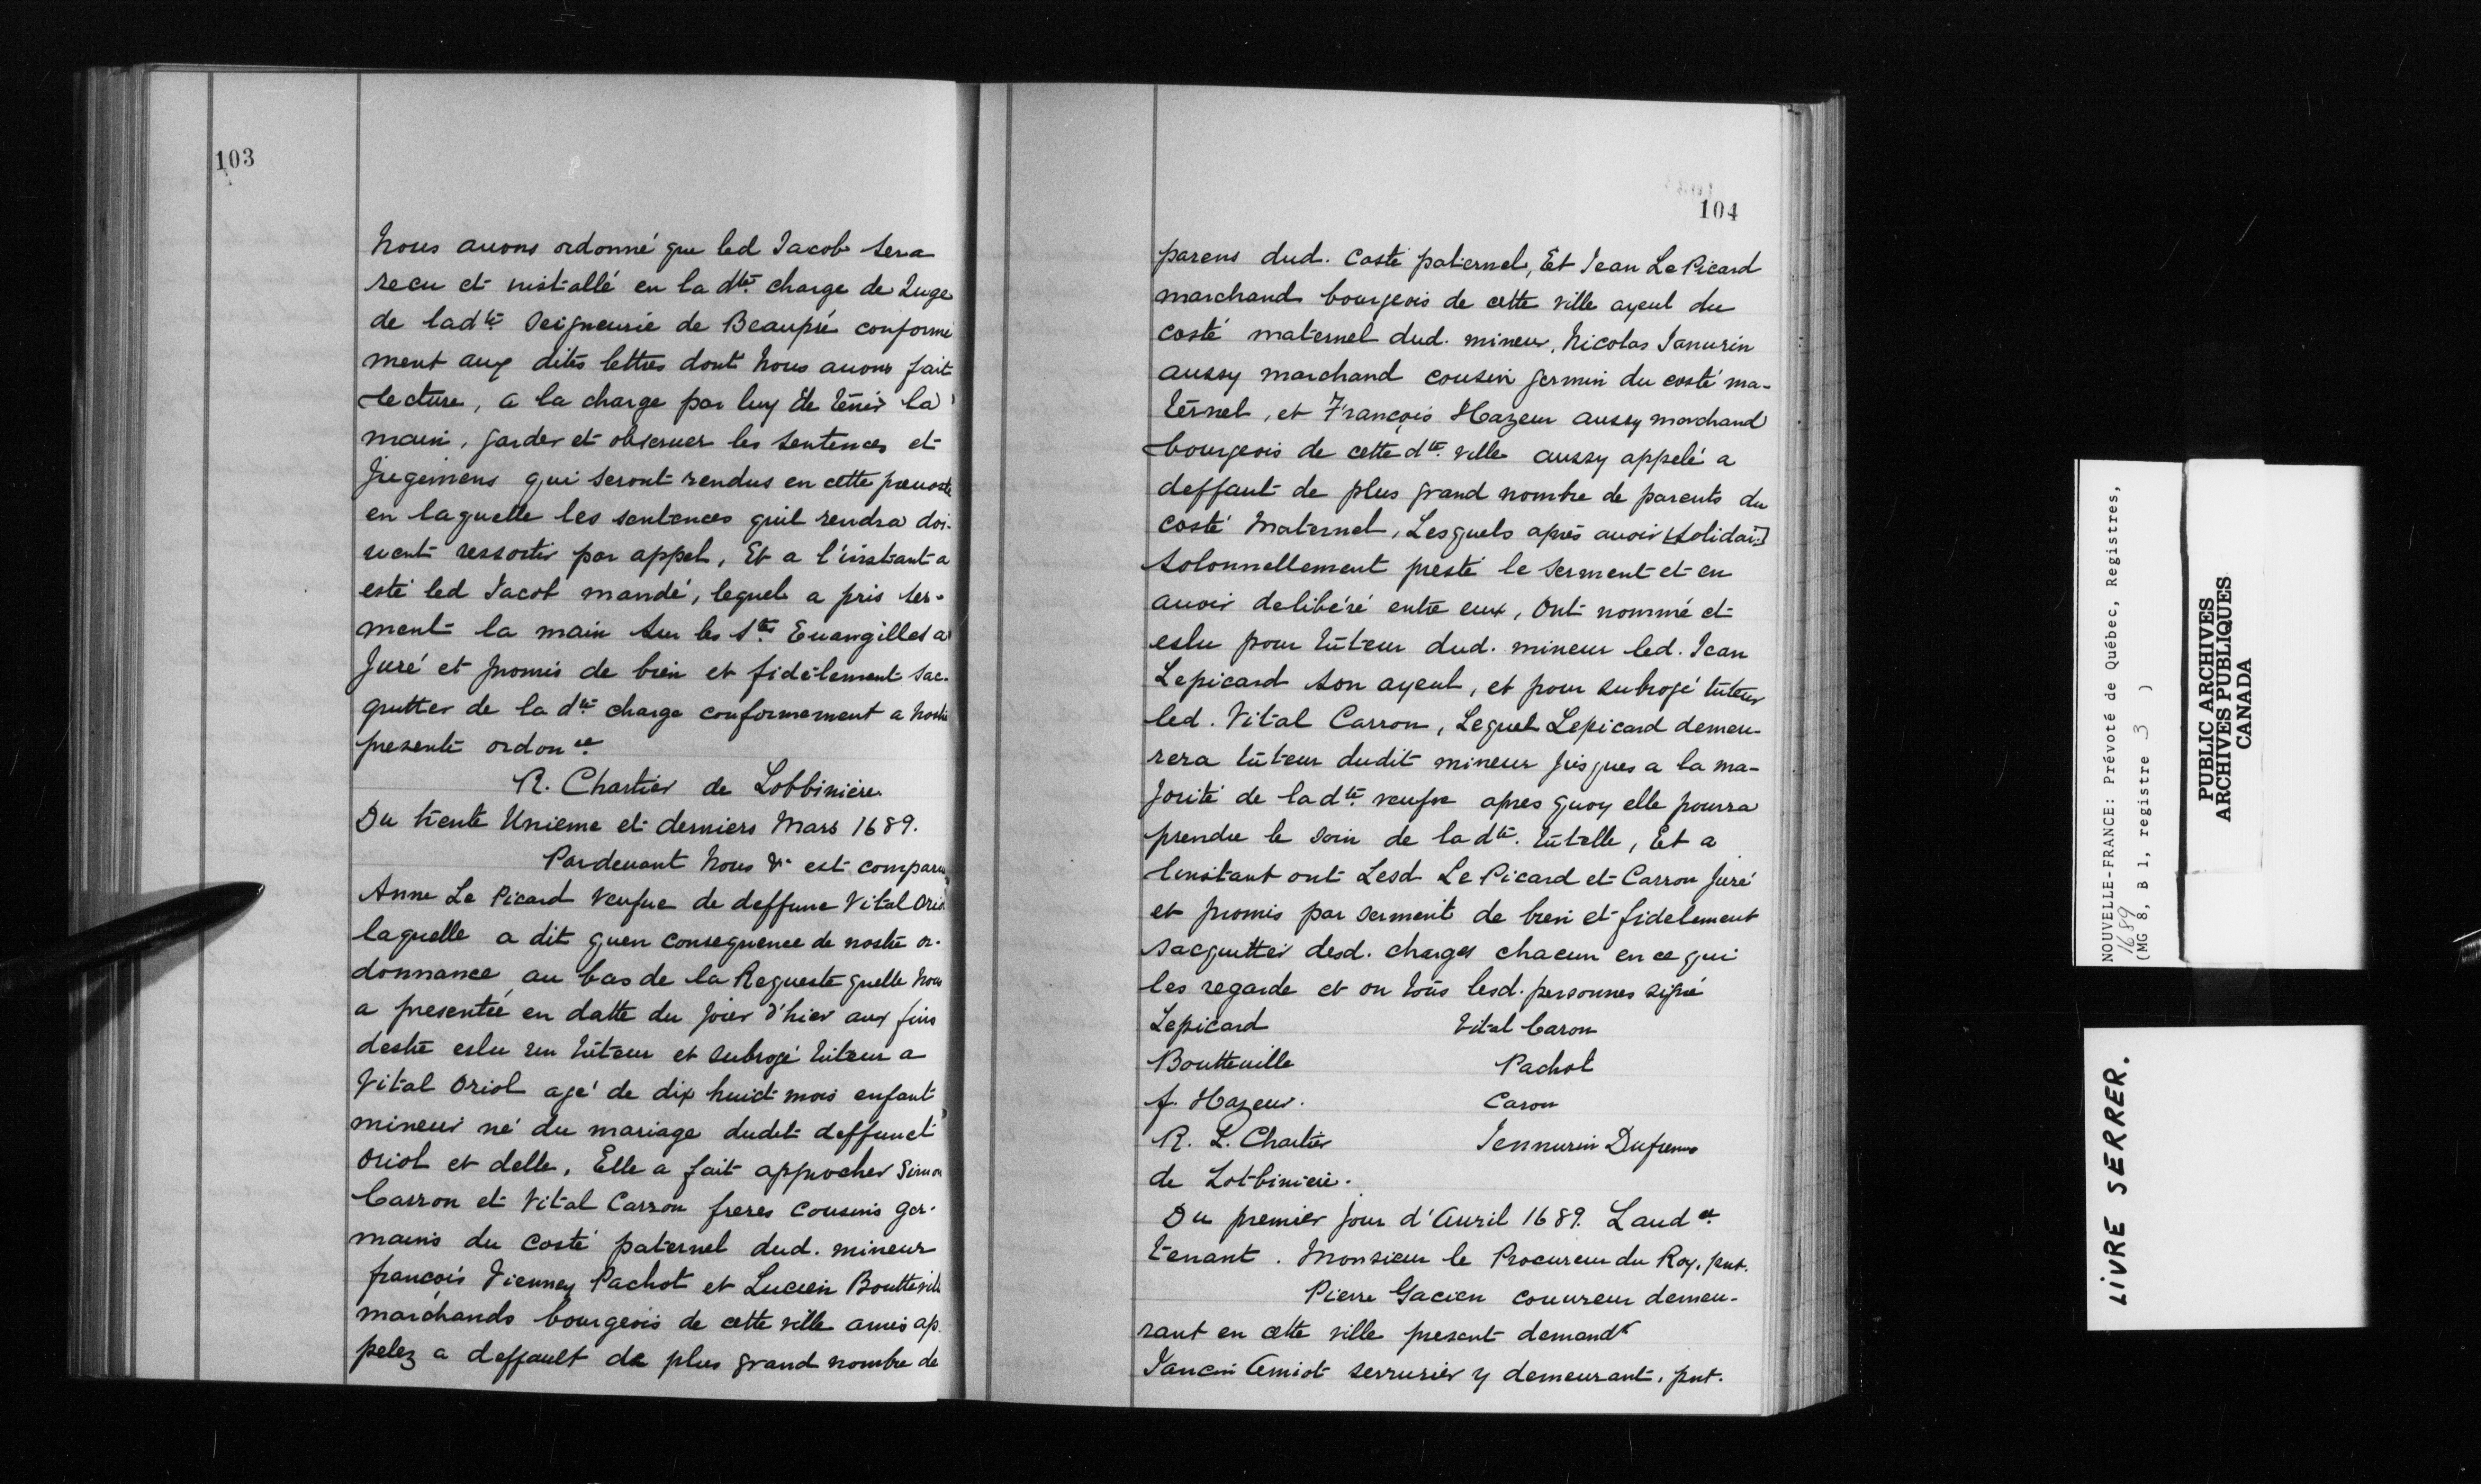 103
Nous auons ordonné que led Jacob sera
recu et installé en la dte. charge de Juge
de ladte Seigneurie de Beaupré conforme
ment aux dites lettres dont Nous auons fait
lecture, a la charge par luy de tenir la
main, garder et obseruer les sentences et
Jugemens qui seront rendus en cette preuosté
en laquelle les sentences quil rendra doi-
uent ressortir par appel, Et a l'instant a
esté led Jacob mandé, lequel a pris ser-
ment la main sur les Stes Euangilles a
Juré et promis de bien et fidèlement sac-
quitter de la dte charge conformement a nostre
presente ordonce.
R. Chartier de Lobbiniere
Du trente Unieme et derniers Mars 1689.
Pardeuant Nous est comparu
Anne Le Picard veufue de deffunc Vital Oriol
laquelle a dit quen consequence de nostre or-
donnance au bas de la Requeste quelle Nous
a presentée en datte du Jour d'hier aux fins
destre eslu un tuteur et subrogé tuteur a
Vital Oriol agé de dix huict mois enfant
mineur né du mariage dudit deffunct
Oriol et delle, Elle a fait approcher Simon
Carron et Vital Carron freres cousins ger-
mains du costé paternel dud. mineur
françois Vienney Pachot et Lucien Boutteville
marchands bourgeois de cette ville amis ap-
pelez a deffault de plus grand nombre de
104
parens dud. costé paternel, Et Jean Le Picard
marchand bourgeois de cette ville ayeul du
costé maternel dud. mineur, Nicolas Janurin
aussy marchand cousin germin du costé ma-
ternel, et François Hazeur aussy marchand
bourgeois de cette dte. ville aussy appelé a
deffaut de plus grand nombre de parents du
costé Maternel, Lesquels après auoir [solidai:]
solonnellement presté le serment et en
auoir delibéré entre eux, Ont nommé et
eslu pour tuteur dud. mineur led. Jean
Lepicard son ayeul, et pour subrogé tuteur
led. Vital Carron, Lequel Lepicard demeu-
rera tuteur dudit mineur Jusques a la ma-
Jorité de ladte. veufve apres quoy elle pourra
prendre le soin de la dte. tutelle, Et a
linstant ont Lesd Le Picard et Carron Juré
et promis par serment de bien et fidelement
sacquitter desd. charges chacun en ce qui
les regarde et on tous lesd. personnes signé
Lepicard Vital Caron
Boutteuille Pachot
f. Hazeur. Caron
R. L. Chartier Jennurin Dufresne
de Lotbiniere.
Du premier Jour d'Auril 1689. Laudce
tenant. Monsieur le Procureur du Roy, pnt.
Pierre Gacien couureur demeu-
rant en cette ville present demandr
Jancin Amiot serrurier y demeurant, pnt.
NOUVELLE-FRANCE: Prévoté de Québec, Registres,
1689
(MG 8, B 1, registre 3 )
PUBLIC ARCHIVES
ARCHIVES PUBLIQUES
CANADA
LIVRE SERRER.